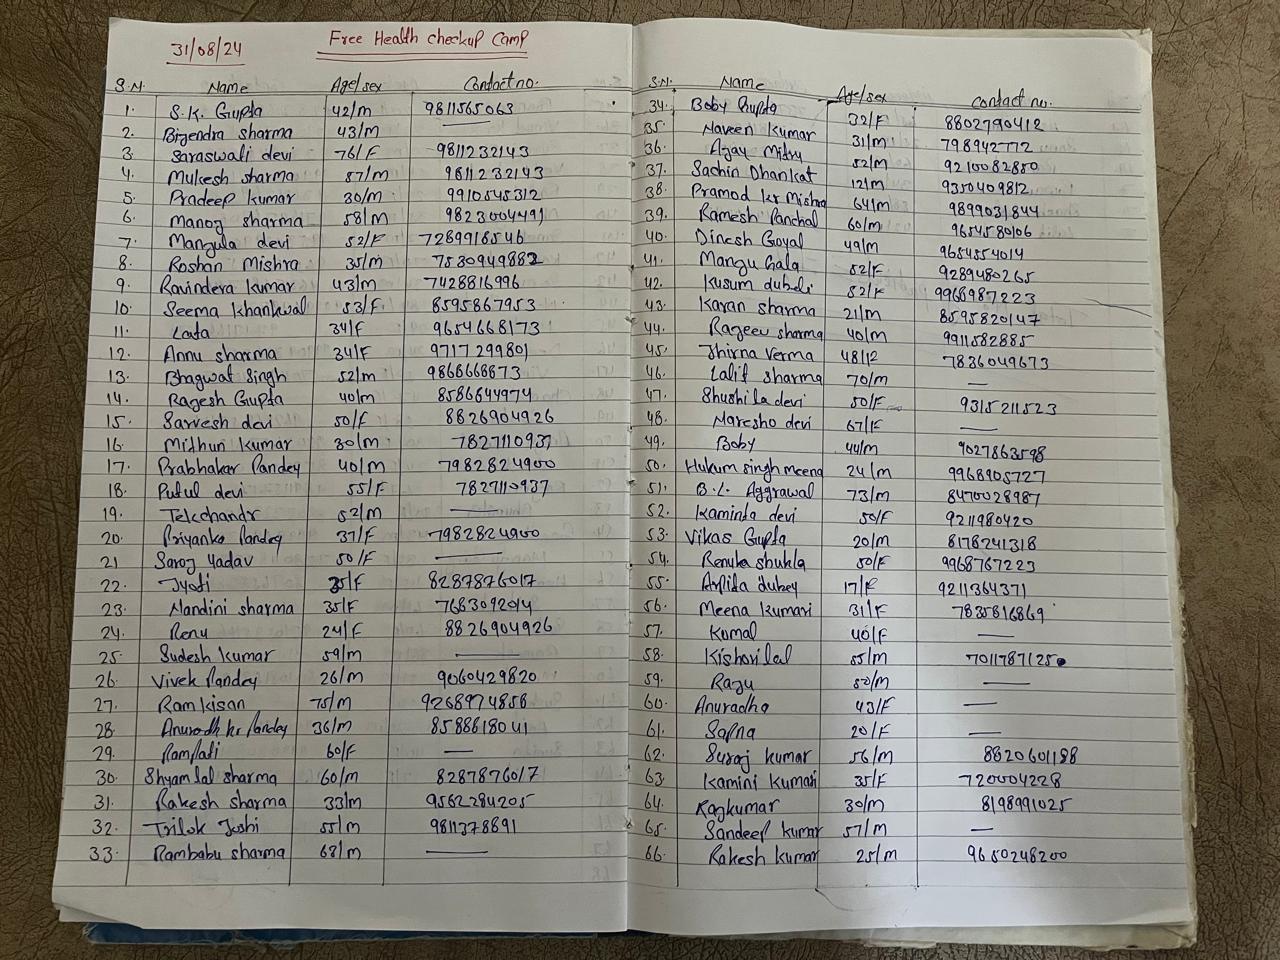 31/08/24 Free Health Checkup Camp
S.N. Name Age/sex Contact no.
1. S.K. Gupta 42/m 9811565063
2. Bijendra sharma 43/m —
3. Saraswati devi 76/F 9811232143
4. Mukesh sharma 57/m 9811232143
5. Pradeep kumar 30/m 9910545312
6. Manoj sharma 58/m 9823004491
7. Mangula devi 52/F 7289918546
8. Roshan Mishra 35/m 7530949882
9. Ravindera kumar 43/m 7428816996
10. Seema khankwal 53/F 8595867953
11. Lata 34/F 9654668173
12. Annu sharma 34/F 9717299801
13. Bhagwat Singh 52/m 9866668873
14. Rajesh Gupta 40/m 8586844974
15. Sarvesh devi 50/F 8826904926
16. Mithun kumar 30/m 7827110937
17. Prabhakar Pandey 40/m 7982824900
18. Putul devi 55/F 7827110937
19. Tekchandr 52/m —
20. Priyanka Pandey 37/F 7982824900
21 Saroj yadav 50/F —
22. Jyoti 35/F 8287876017
23. Nandini sharma 35/F 7683092014
24. Renu 24/F 8826904926
25. Sudesh kumar 59/m —
26. Vivek Pandey 26/m 9060429820
27. Ram kisan 75/m 9268974858
28. Anurodh kr Pandey 36/m 8588618041
29. Rampati 60/F —
30. Shyam lal sharma 60/m 8287876017
31. Rakesh sharma 33/m 9562284205
32. Trilok Joshi 55/m 9811378891
33. Rambabu sharma 68/m —
S.N. Name Age/sex Contact no.
34. Boby Gupta 32/F 8802790412
35. Naveen kumar 31/m 798942772
36. Ajay 52/m 9210082850
37. Sachin Dhankat 12/m 9350409812
38. Pramod kr Mishra 64/m 9899031844
39. Ramesh Panchal 60/m 9654580106
40. Dinesh Goyal 49/m 9654554014
41. Mangu Gala 52/F 9289480265
42. Kusum dubeli 52/F 9968987223
43. Karan sharma 21/m 8595820147
44. Rajeev sharma 40/m 9911582885
45. Jhirna verma 48/12 7836049673
46. Lalit sharma 70/m —
47. Shushila devi 50/F 9315211523
48. Naresho devi 67/F —
49. Boby 44/m 9027863598
50. Hukum singh meena 24/m 9968905727
51. B.L. Aggrawal 73/m 8470028987
52. Kaminta devi 50/F 9211980420
53. Vikas Gupta 20/m 8178241318
54. Renuka shukla 50/F 9968767223
55. dubey 17/F 9211364371
56. Meena kumari 31/F 7835816869
57. Komal 40/F —
58. Kishori lal 55/m 7011787125
59. Raju 50/m —
60. Anuradha 43/F —
61. Sapna 20/F —
62. Suraj kumar 56/m 8820601188
63. Kamini kumari 35/F 720004228
64. Rajkumar 30/m 8198991025
65. Sandeep kumar 57/m —
66. Rakesh kumar 25/m 9650248200